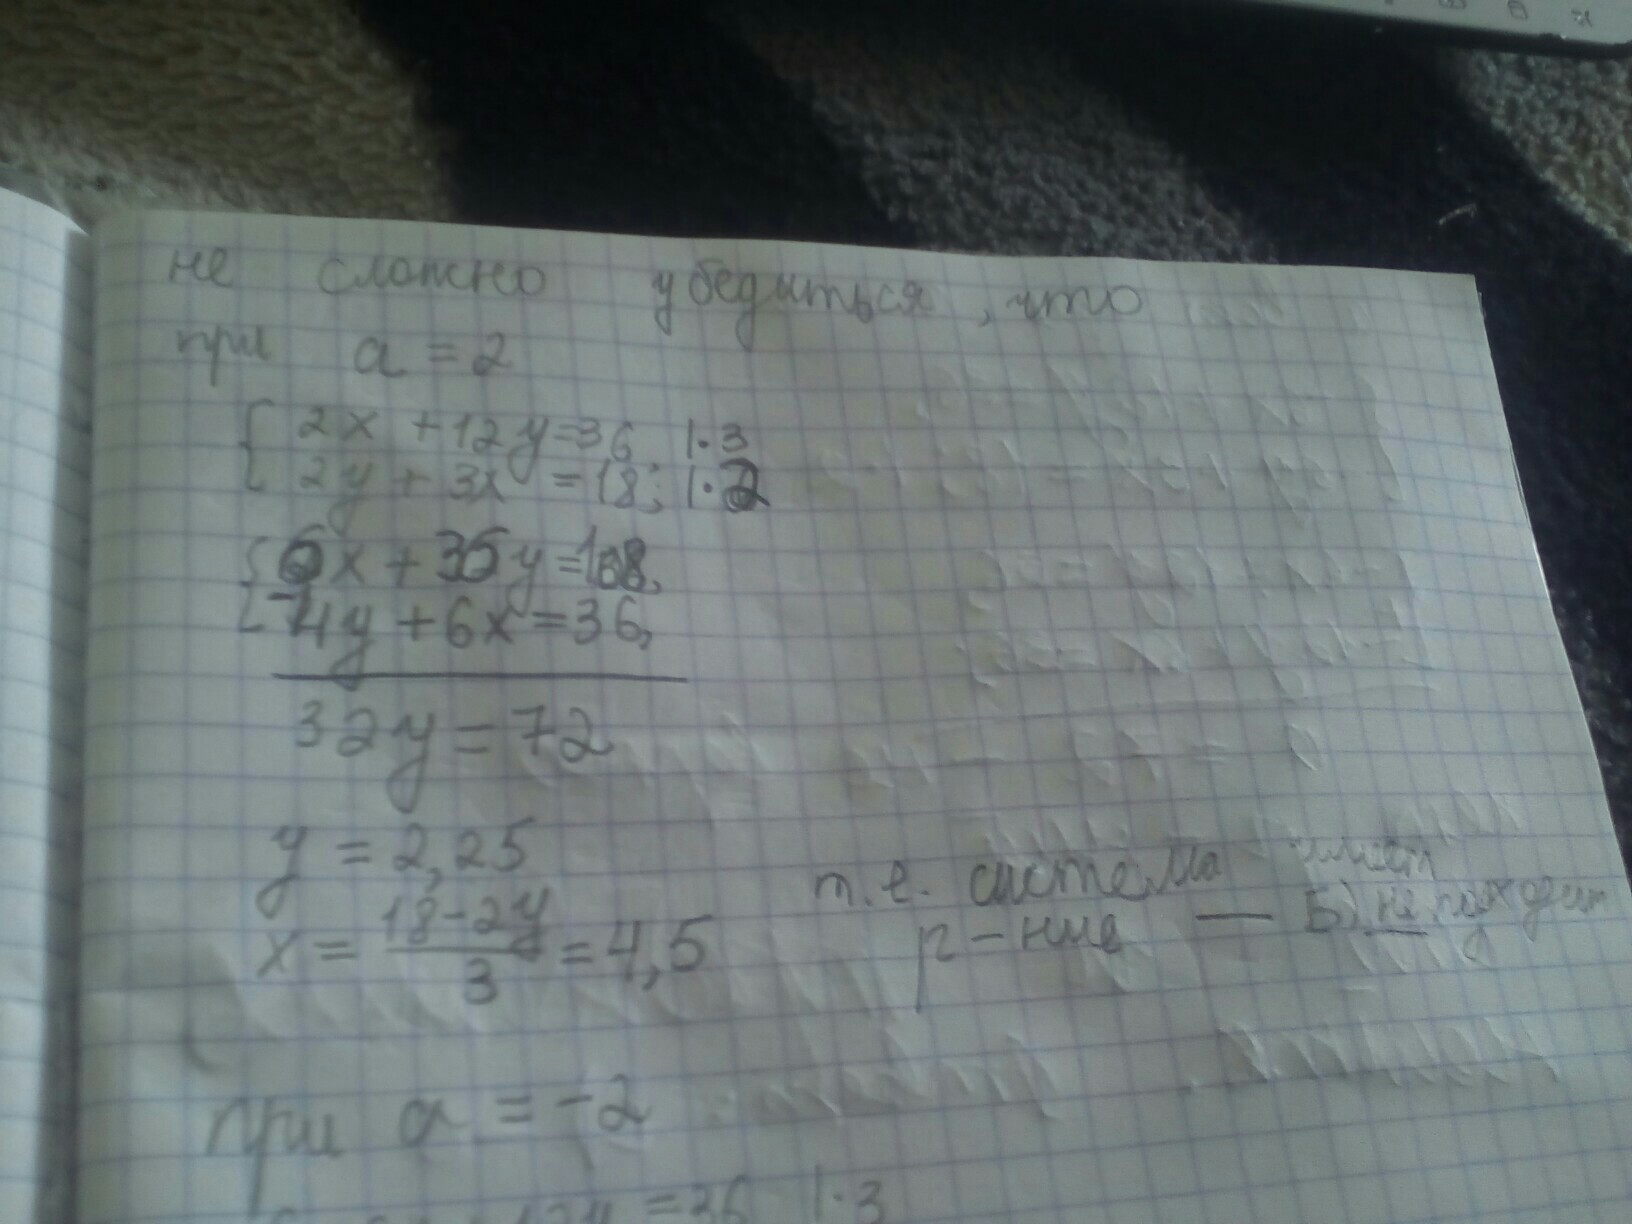 не сложно убедиться, что
при a = 2
{ 2x + 12y = 36 | · 3
2y + 3x = 18; | · 2
{ 6x + 36y = 108,
4y + 6x = 36,
32y = 72
y = 2,25
x = \frac{18-2y}{3} = 4,5
т.е. система имеет
р-ние — Б) не подходит
при a = -2
12y = 36 | · 3